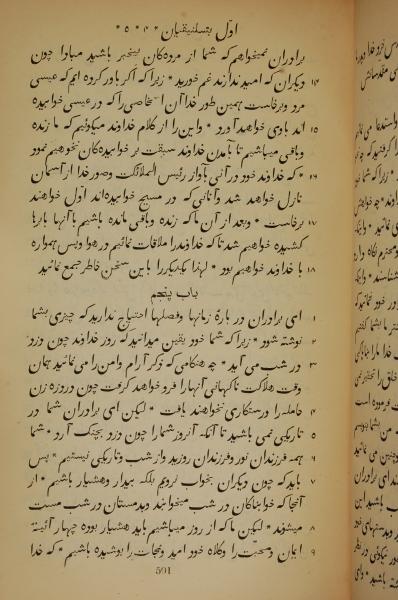 اوّل بتسلنیقیان * ۴ * ۵ *
برادران نمیخواهم که شما از مردهکان بیخبر باشید مبادا چون
۱۴ دیکران که امید ندارند غم خورید * زیرا که اکر باور کرده ایم که عیسی
مرد و برخاست همین طور خدا آن اشخاصی را که در عیسی خوابیده
۱۵ اند باوی خواهد آورد * و این را از کلام خداوند میکوئیم که ما زنده
و باقی میباشیم تا بآمدن خداوند سبقت بر خوابیده کان نخواهیم نمود
۱۶ * که خداوند خود در آنی بآواز رئیس الملائکت و صور خدا از آسمان
نازل خواهد شد و آنانی که در مسیح خوابیده اند اول خواهند
۱۷ برخاست * و بعد از آن ما که زنده و باقی مانده باشیم با آنها بابرها
کشیده خواهیم شد تا که خداوند را ملاقات نمائیم در هوا و بس همواره
۱۸ با خداوند خواهیم بود * لهذا یکدیکر را باین سخن خاطر جمع نمائید
باب پنجم
۱ ای برادران در بارهٔ زمانها و فصلها احتیاج ندارید که چیزی بشما
۲ نوشته شود * زیرا که شما خود یقین میدانید که روز خداوند چون دزد
۳ در شب می آید * چه هنکامی که ذکر آرام و امن را می نمائید همان
وقت هلاکت ناکهانی آنها را فرو خواهد کرفت چون درد زه زن
۴ حامله را و رستکاری نخواهند یافت * لیکن ای برادران شما در
۵ تاریکی نمی باشید تا آنکه آنروز شما را چون دزد بچنک آرد * شما
۶ همه فرزندان نور و فرزندان روزید و از شب و تاریکی نیستیم * پس
۷ باید که چون دیکران بخواب نرویم بلکه بیدار و هشیار باشیم * از
آنجا که خوابناکان در شب میخوابند و بدمستان در شب مست
۸ میشوند * لیکن ما که از روز میباشیم باید هشیار بوده چهار آئینهٔ
۹ ایمان و محبت را و کلاه خود امید و نجات را پوشیده باشیم * که خدا
501